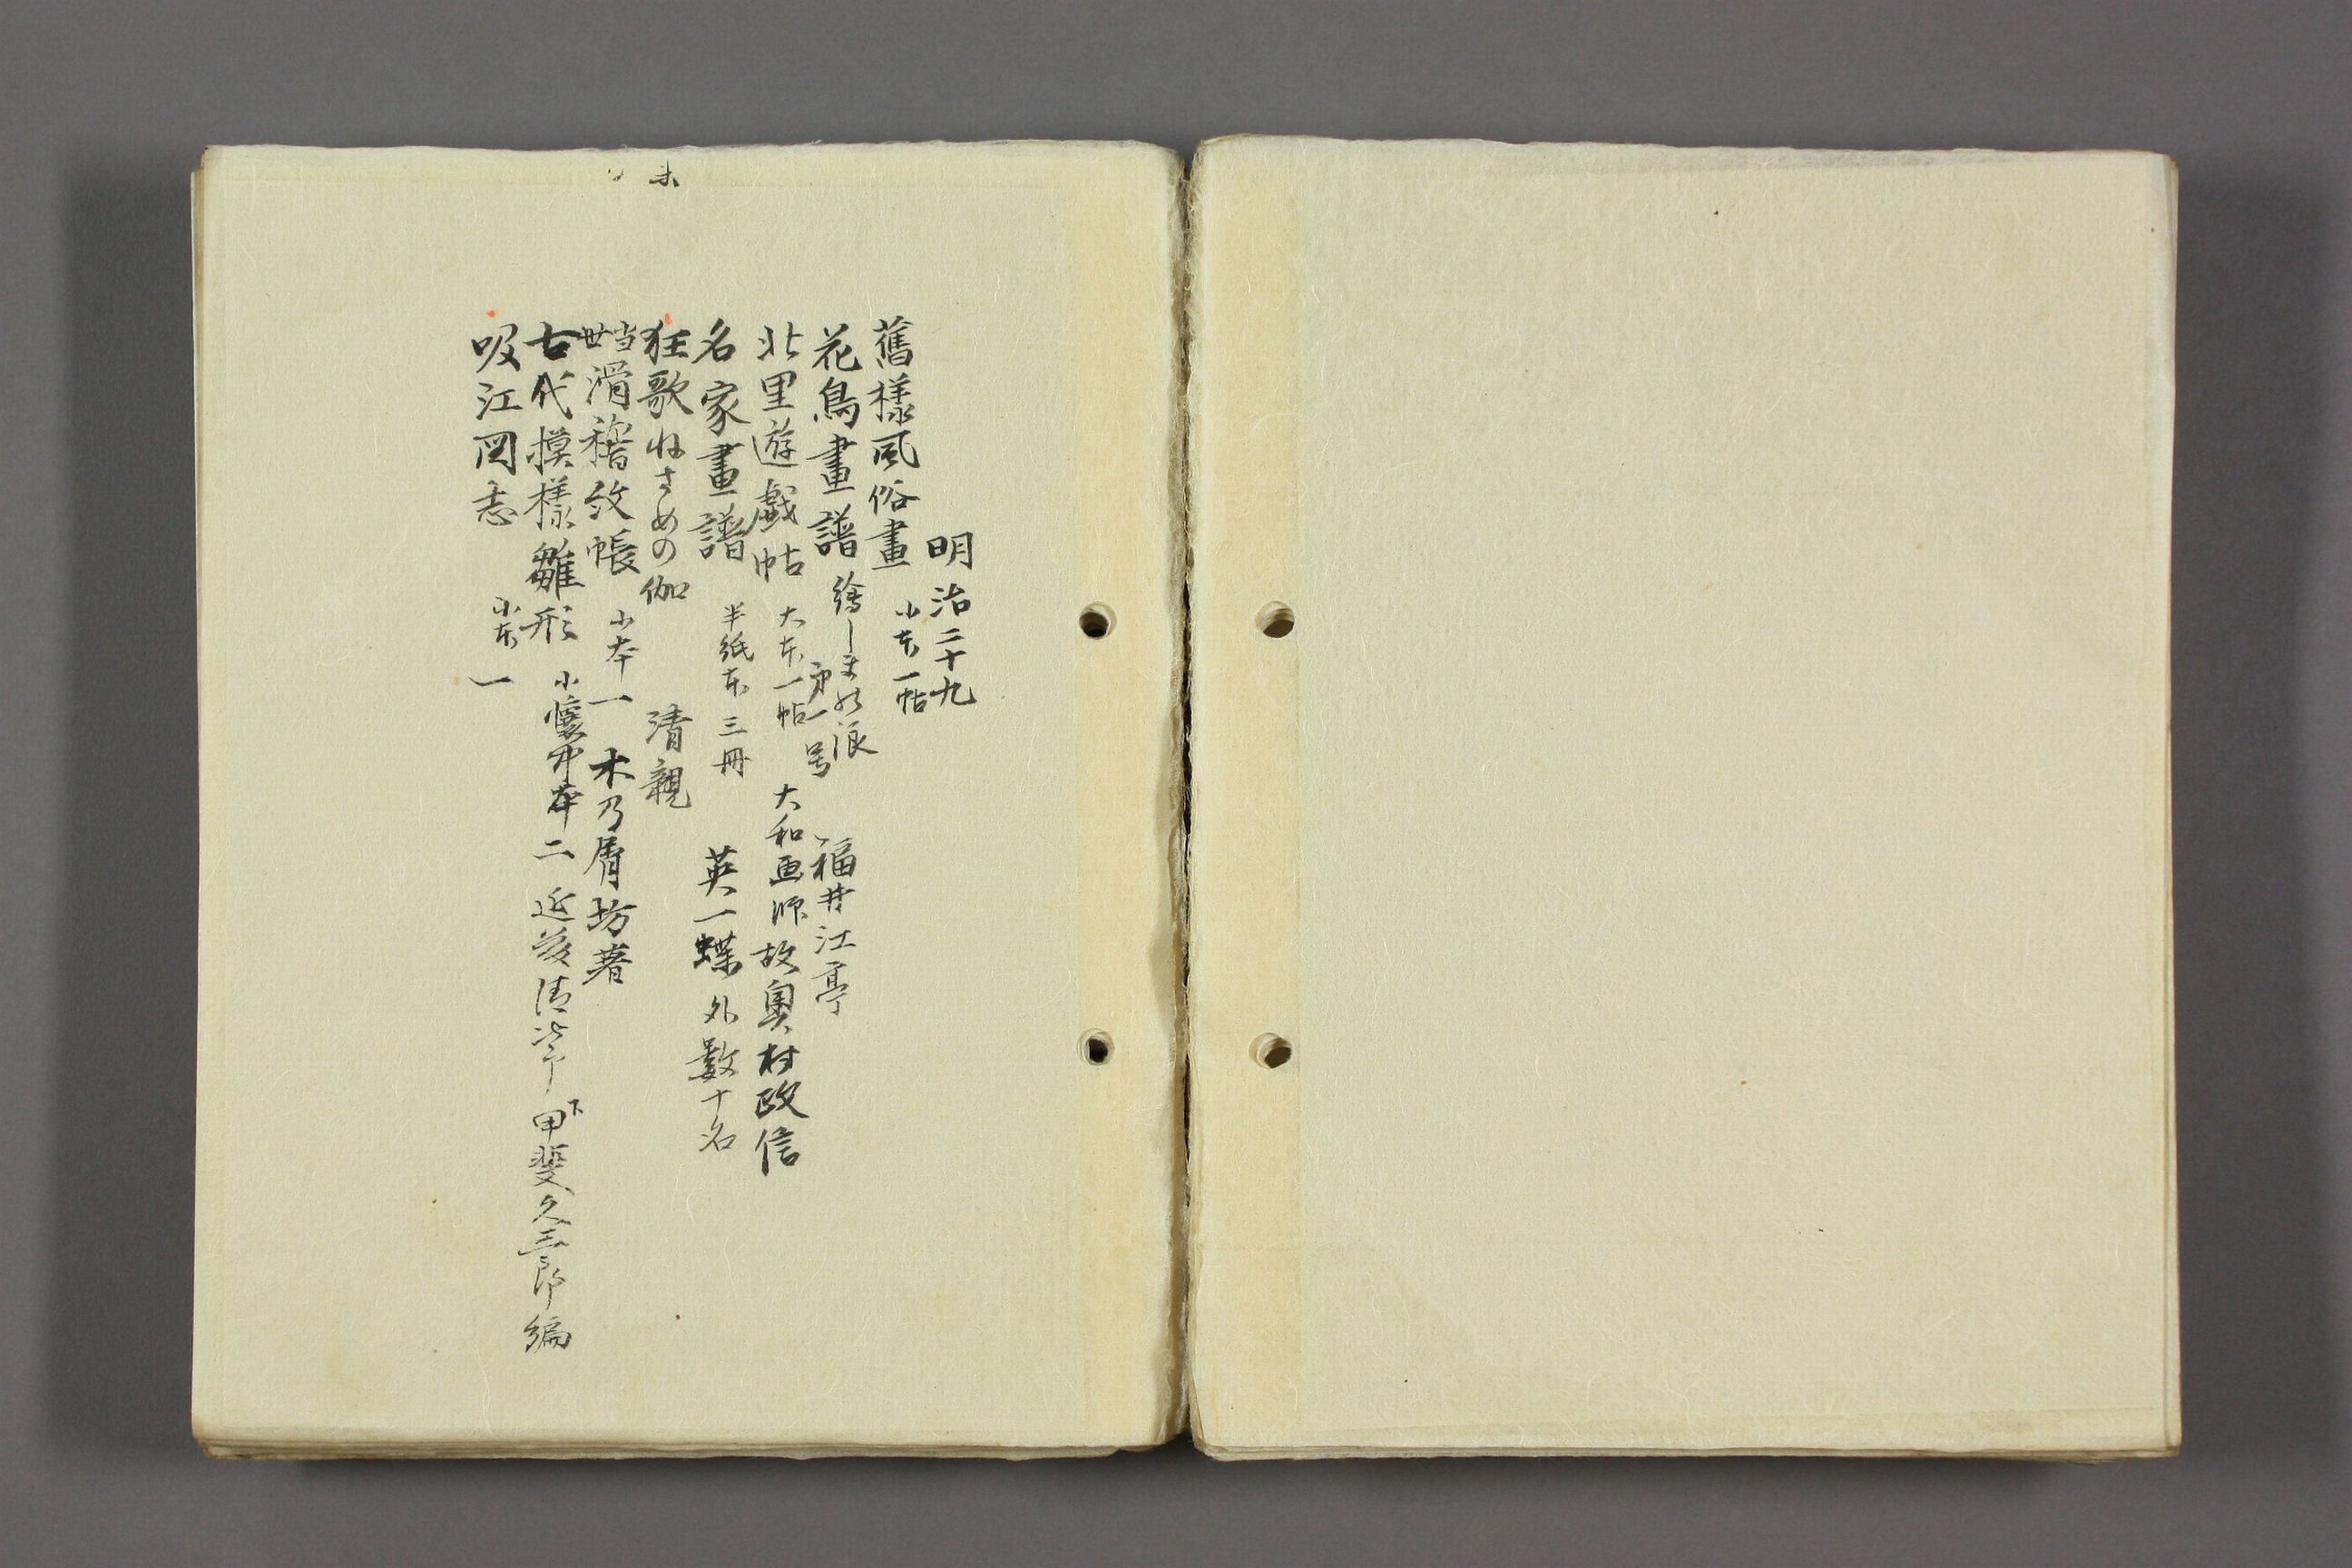 明治二十九
舊樣風俗畫 小本一帖
花鳥畫譜 繪しま水浪 第一号 福井江亭
北里遊戯帖 大本一帖 大和画师故奥村政信
名家畫譜 半紙本三冊 英一蝶外数十名
狂歌ねさめの伽 清親
当世滑稽紋帳 小本一 木乃屑坊著
古代摸樣雛形 小懐中本二 近藤清 甲斐久三郎編
吸江図志 小本一